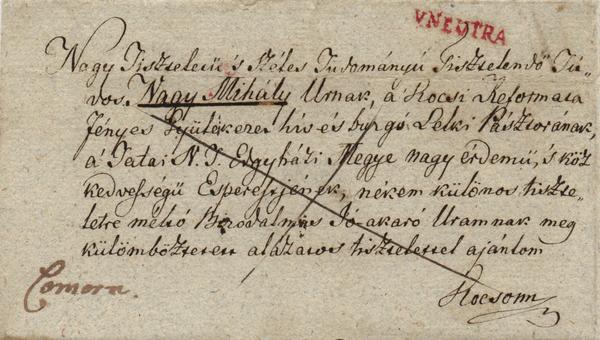 VNEUTRA
Nagy Tiszteletü és Széles Tudományú Tisztelendö Tú„
dos Nagy Mihály Urnak, a Kocsi Reformata
fényes Gyülekezet hiv és buzgó Lelki Pásztorának,
a Tatai N. T. Egyházi Megye nagy érdemü, és köz
kedvességü Esperesstjének, nékem különös tiszte„
letre méltó Bizodalmas Jó-akaró Uramnak meg
külömböztetett alázatos tisztelettel ajánlom
Comorn.
Kocsonn